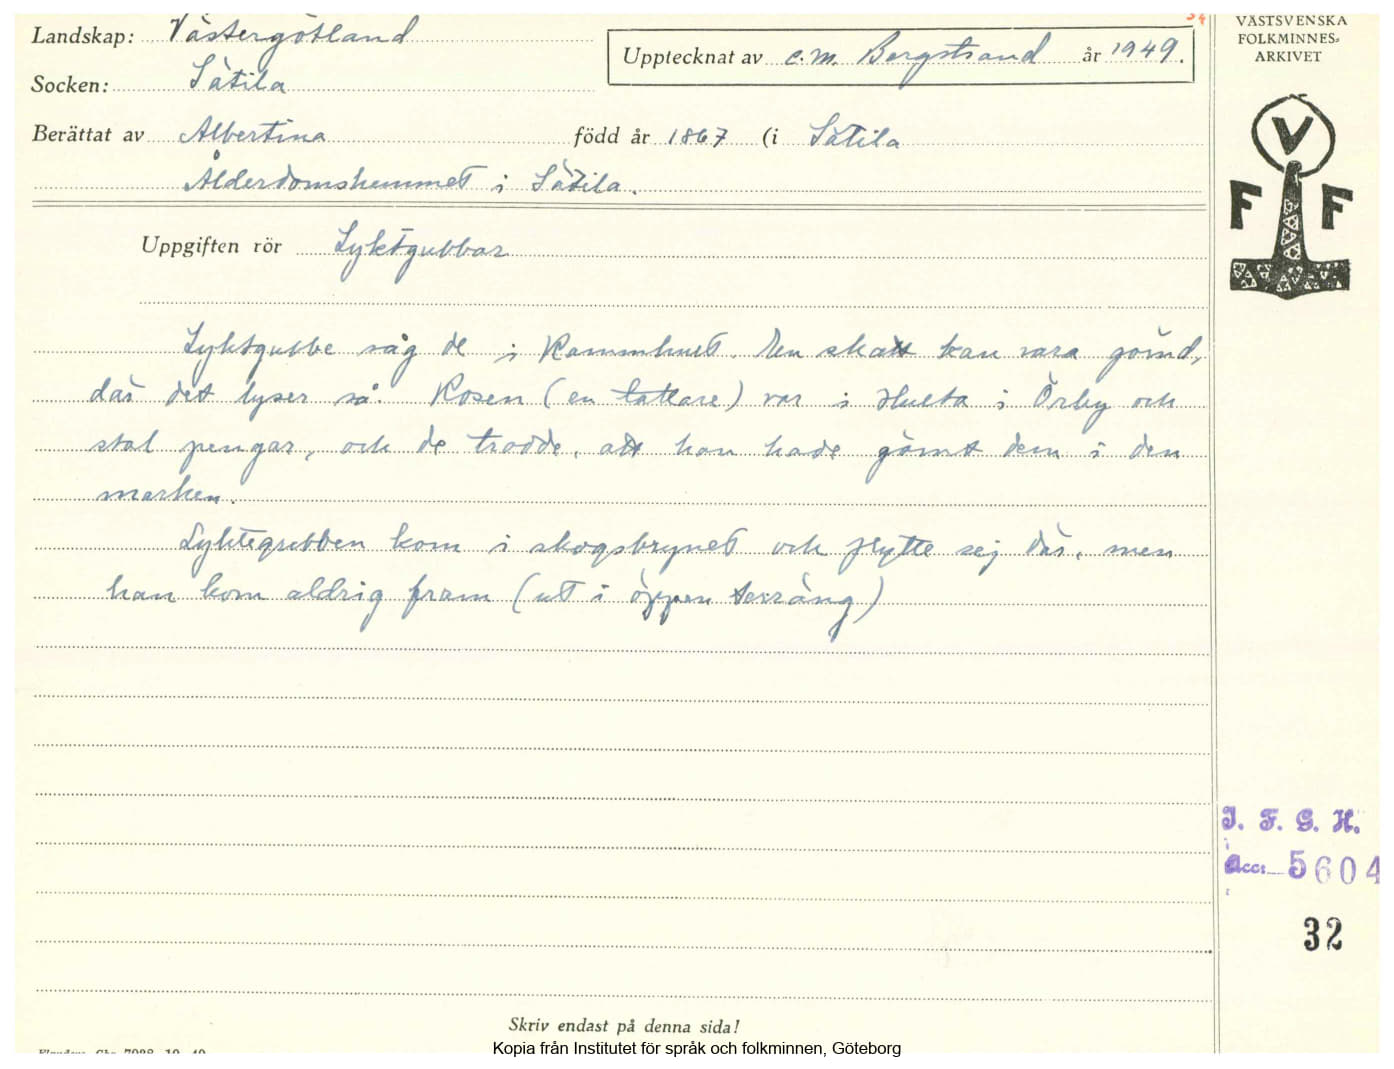 34
VÄSTSVENSKA
FOLKMINNES-
ARKIVET
Landskap: Västergötland
Upptecknat av C.M. Bergstrand år 1949.
Socken: Sätila
Berättat av Albertina född år 1867 (i Sätila
Ålderdomshemmet i Sätila.
V
F F
Uppgiften rör Lyktgubbar
Lyktgubbe såg de i Kammhult. En skatt kan vara gömd,
där det lyser så. Rosen (en tattare) var i Hulta i Örby och
stal pengar, och de trodde, att han hade gömt dem i den
marken.
Lyktegubben kom i skogsbrynet och flytte sej där, men
han kom aldrig fram (ut i öppen terräng)
I. F. G. H.
Acc: 5604
32
Skriv endast på denna sida!
Kopia från Institutet för språk och folkminnen, Göteborg